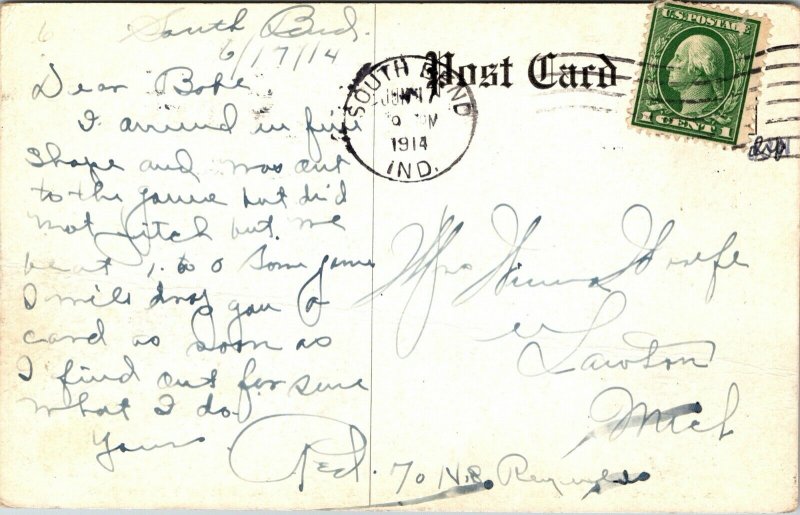 South Bend.
6/17/14
Dear Babe
I arrived in fine
shape and was out
to the game but did
not pitch but we
beat 1. to 0 Some game
I will drop you a
card as soon as
I find out for sure
what I do
Yours
Red.
Post Card
SOUTH BEND
JUN 17
1914
IND.
U.S. POSTAGE
1 CENT 1
Mrs Winna Wolfe
Lawton
Mich
% N.R. Reynolds